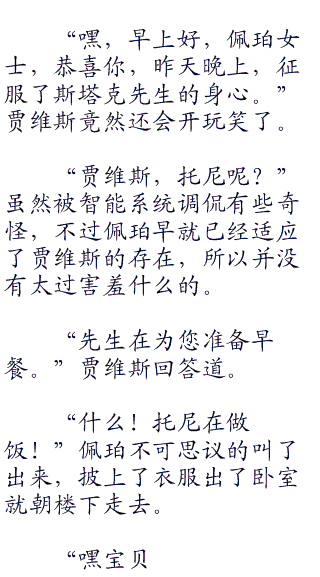 “嘿，早上好，佩珀女
士，恭喜你，昨天晚上，征
服了斯塔克先生的身心。”
贾维斯竟然还会开玩笑了。
“贾维斯，托尼呢？”
虽然被智能系统调侃有些奇
怪，不过佩珀早就已经适应
了贾维斯的存在，所以并没
有太过害羞什么的。
“先生在为您准备早
餐。”贾维斯回答道。
“什么！托尼在做
饭！”佩珀不可思议的叫了
出来，披上了衣服出了卧室
就朝楼下走去。
“嘿宝贝